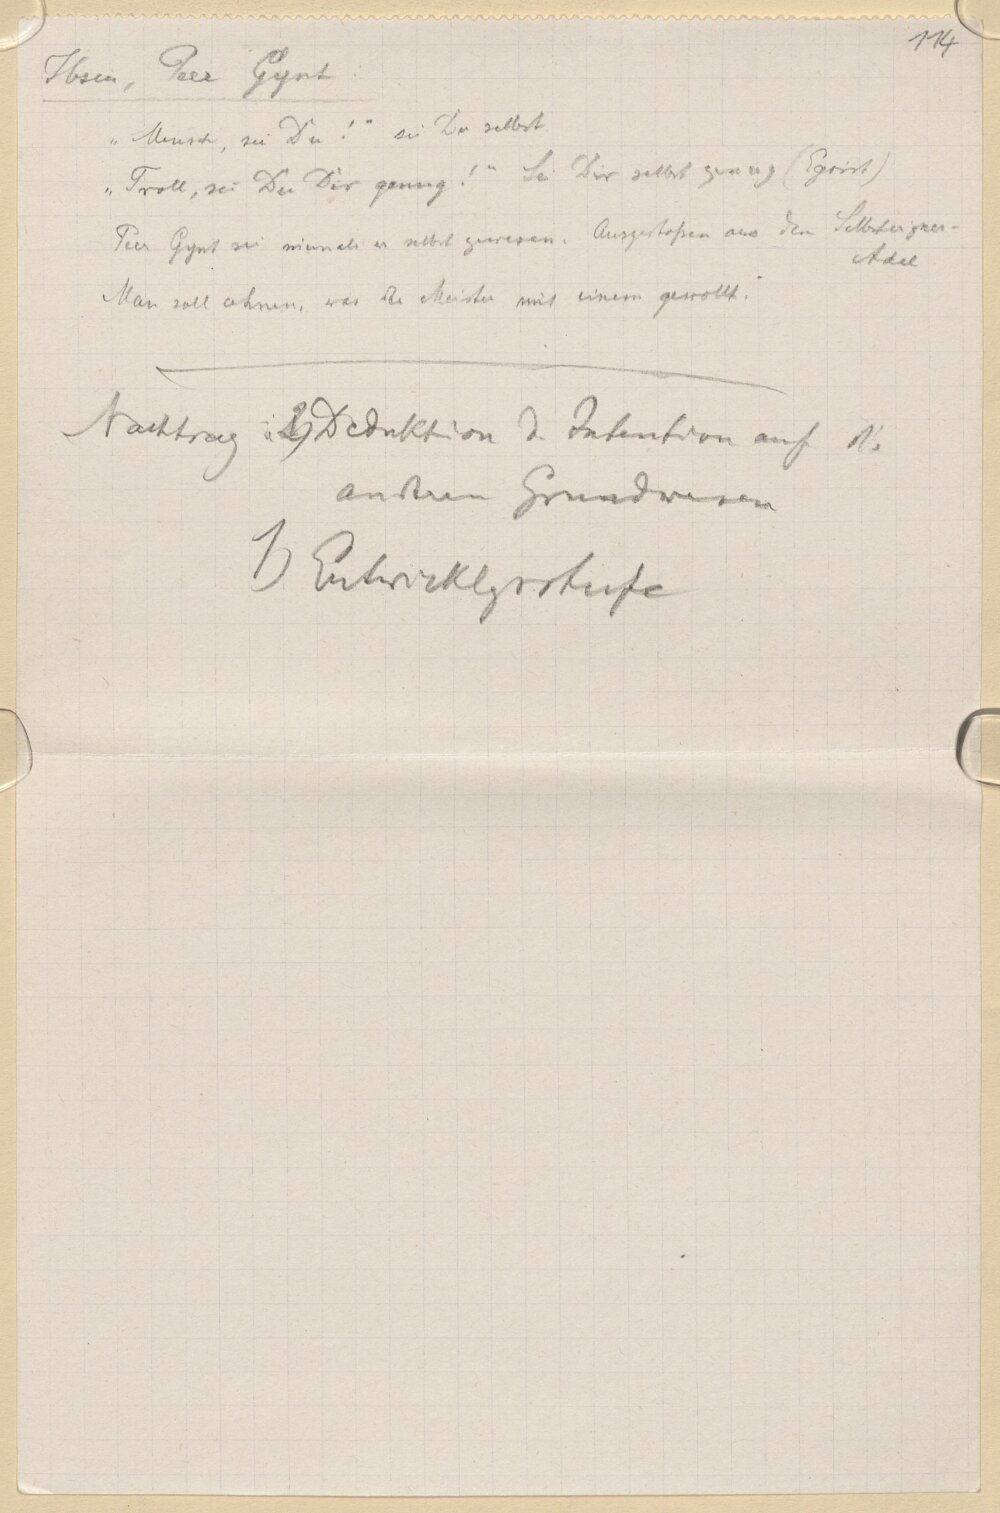 114
Ibsen, Peer Gynt
„Mensch, sei Du!“ sei Du selbst
„Troll, sei Du Dir genug!“ Sei Dir selbst genug (Egoist)
Peer Gynt sei niemals er selbst gewesen. Ausgestoßen aus dem Selbsteigner-
Adel
Man soll ahnen, was die Meister mit einem gewollt.
Nachtrag: 2) Deduktion d. Intention auf d.
anderen Grundwesen
1) Entwicklgsstufe